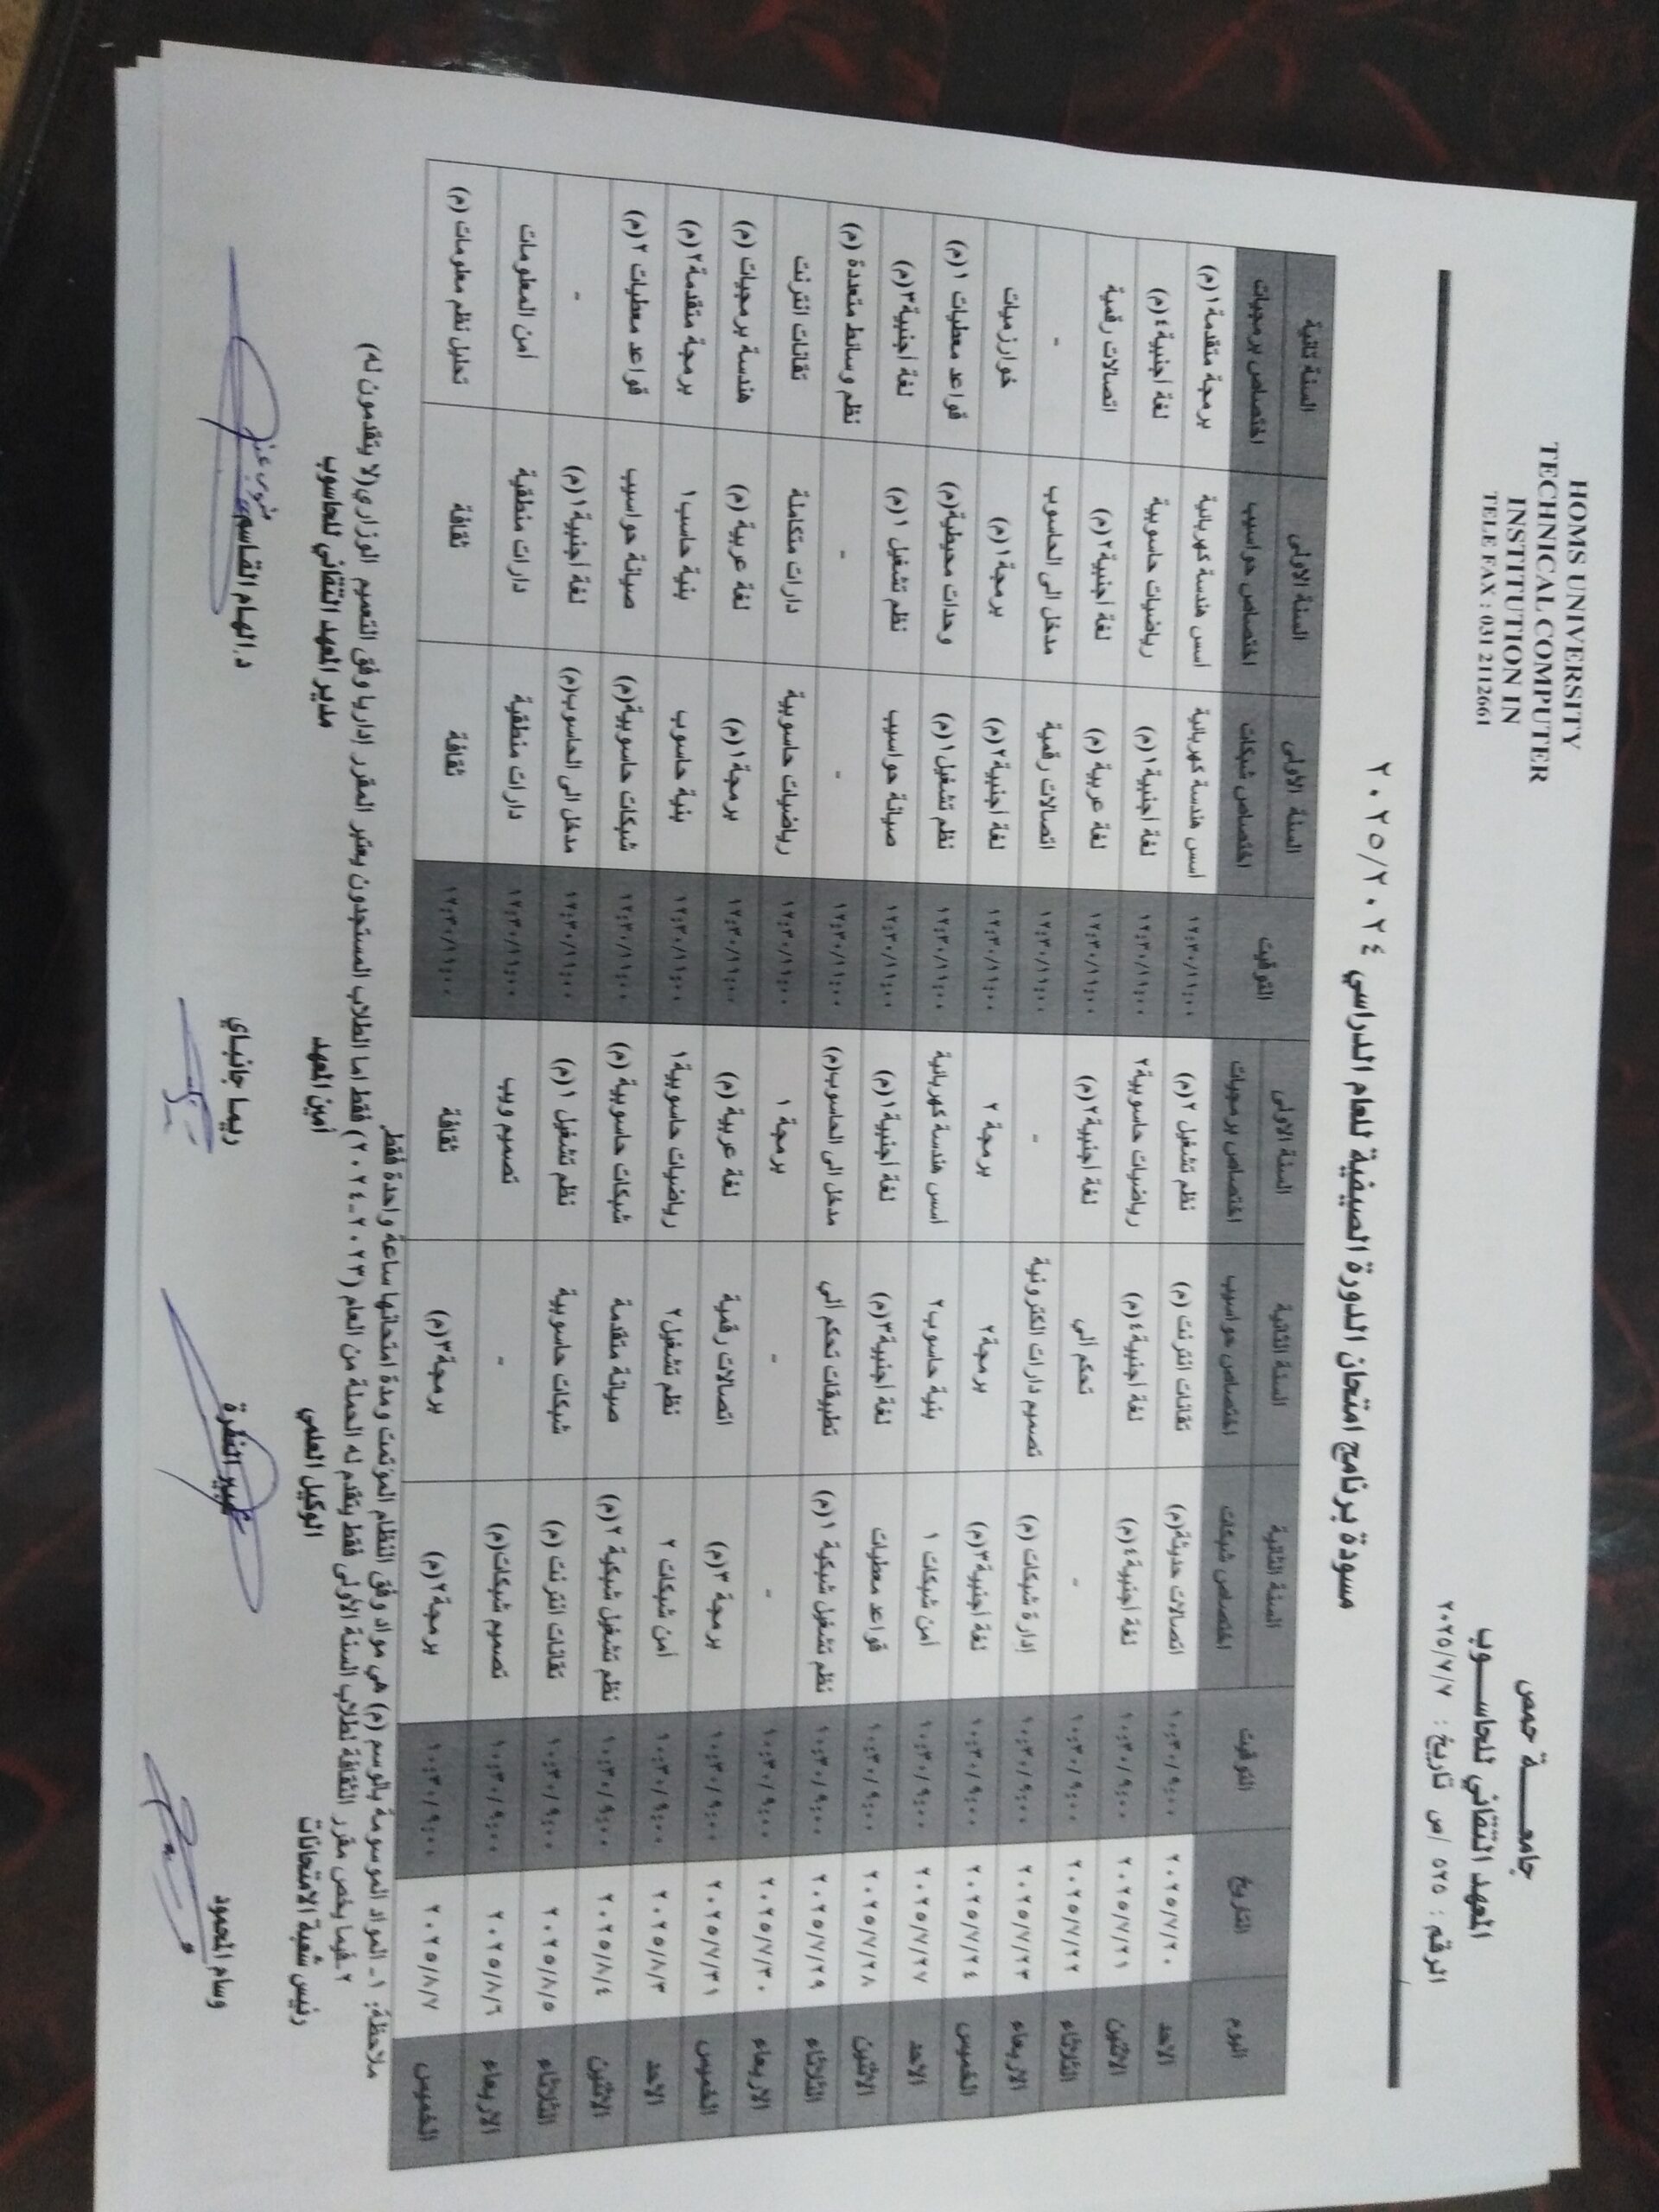 جامعـــــة حمص
المعهد التقاني للحاســـوب
الرقم : ٥٢٥ /ص تاريخ : ٢٠٢٥/٧/٧
HOMS UNIVERSITY
TECHNICAL COMPUTER
INSTITUTION IN
TELE FAX : 031 2112661
مسودة برنامج امتحان الدورة الصيفية للعام الدراسي ٢٠٢٥/٢٠٢٤
اليوم التاريخ التوقيت السنة الثانية اختصاص شبكات السنة الثانية اختصاص حواسيب السنة الاولى اختصاص برمجيات التوقيت السنة الأولى اختصاص شبكات السنة الاولى اختصاص حواسيب السنة ثانية اختصاص برمجيات
الاحد ٢٠٢٥/٧/٢٠ ١٠:٣٠/٩:٠٠ اتصالات حديثة(م) تقانات انترنت (م) نظم تشغيل ٢(م) ١٢:٣٠/١١:٠٠ أسس هندسة كهربائية أسس هندسة كهربائية برمجة متقدمة١(م)
الاثنين ٢٠٢٥/٧/٢١ ١٠:٣٠/٩:٠٠ لغة أجنبية٤(م) لغة أجنبية٤(م) رياضيات حاسوبية٢ ١٢:٣٠/١١:٠٠ لغة أجنبية١(م) رياضيات حاسوبية لغة أجنبية٤(م)
الثلاثاء ٢٠٢٥/٧/٢٢ ١٠:٣٠/٩:٠٠ - تحكم آلي لغة أجنبية٢(م) ١٢:٣٠/١١:٠٠ لغة عربية (م) لغة أجنبية٢(م) اتصالات رقمية
الاربعاء ٢٠٢٥/٧/٢٣ ١٠:٣٠/٩:٠٠ إدارة شبكات (م) تصميم دارات الكترونية - ١٢:٣٠/١١:٠٠ اتصالات رقمية مدخل الى الحاسوب -
الخميس ٢٠٢٥/٧/٢٤ ١٠:٣٠/٩:٠٠ لغة أجنبية٣(م) برمجة٢ برمجة ٢ ١٢:٣٠/١١:٠٠ لغة أجنبية٢(م) برمجة١(م) خوارزميات
الاحد ٢٠٢٥/٧/٢٧ ١٠:٣٠/٩:٠٠ أمن شبكات ١ بنية حاسوب٢ أسس هندسة كهربائية ١٢:٣٠/١١:٠٠ نظم تشغيل١(م) وحدات محيطية(م) قواعد معطيات ١(م)
الاثنين ٢٠٢٥/٧/٢٨ ١٠:٣٠/٩:٠٠ قواعد معطيات لغة أجنبية٣(م) لغة أجنبية١(م) ١٢:٣٠/١١:٠٠ صيانة حواسيب نظم تشغيل ١(م) لغة أجنبية٣(م)
الثلاثاء ٢٠٢٥/٧/٢٩ ١٠:٣٠/٩:٠٠ نظم تشغيل شبكية ١(م) تطبيقات تحكم آلي مدخل الى الحاسوب(م) ١٢:٣٠/١١:٠٠ - - نظم وسائط متعددة (م)
الاربعاء ٢٠٢٥/٧/٣٠ ١٠:٣٠/٩:٠٠ - - برمجة ١ ١٢:٣٠/١١:٠٠ رياضيات حاسوبية دارات متكاملة تقانات انترنت
الخميس ٢٠٢٥/٧/٣١ ١٠:٣٠/٩:٠٠ برمجة ٣(م) اتصالات رقمية لغة عربية (م) ١٢:٣٠/١١:٠٠ برمجة١(م) لغة عربية (م) هندسة برمجيات (م)
الاحد ٢٠٢٥/٨/٣ ١٠:٣٠/٩:٠٠ أمن شبكات ٢ نظم تشغيل٢ رياضيات حاسوبية١ ١٢:٣٠/١١:٠٠ بنية حاسوب بنية حاسب١ برمجة متقدمة٢(م)
الاثنين ٢٠٢٥/٨/٤ ١٠:٣٠/٩:٠٠ نظم تشغيل شبكية ٢(م) صيانة متقدمة شبكات حاسوبية (م) ١٢:٣٠/١١:٠٠ شبكات حاسوبية(م) صيانة حواسيب قواعد معطيات ٢(م)
الثلاثاء ٢٠٢٥/٨/٥ ١٠:٣٠/٩:٠٠ تقانات انترنت (م) شبكات حاسوبية نظم تشغيل ١(م) ١٢:٣٠/١١:٠٠ مدخل الى الحاسوب(م) لغة أجنبية١(م) -
الاربعاء ٢٠٢٥/٨/٦ ١٠:٣٠/٩:٠٠ تصميم شبكات(م) - تصميم ويب ١٢:٣٠/١١:٠٠ دارات منطقية دارات منطقية أمن المعلومات
الخميس ٢٠٢٥/٨/٧ ١٠:٣٠/٩:٠٠ برمجة٢(م) برمجة٣(م) ثقافة ١٢:٣٠/١١:٠٠ ثقافة ثقافة تحليل نظم معلومات (م)
ملاحظة: ١- المواد الموسومة بالوسم (م) هي مواد وفق النظام المؤتمت ومدة امتحانها ساعة واحدة فقط
٢-فيما يخص مقرر الثقافة لطلاب السنة الأولى فقط يتقدم له الحملة من العام (٢٠٢٣-٢٠٢٤) فقط اما الطلاب المستجدون يعتبر المقرر إداريا وفق التعميم الوزاري(لا يتقدمون له)
رئيس شعبة الامتحانات الوكيل العلمي أمين المعهد مدير المعهد التقاني للحاسوب
وسام المحمود عبير النظرة ريما جانباي د.الهام القاسم